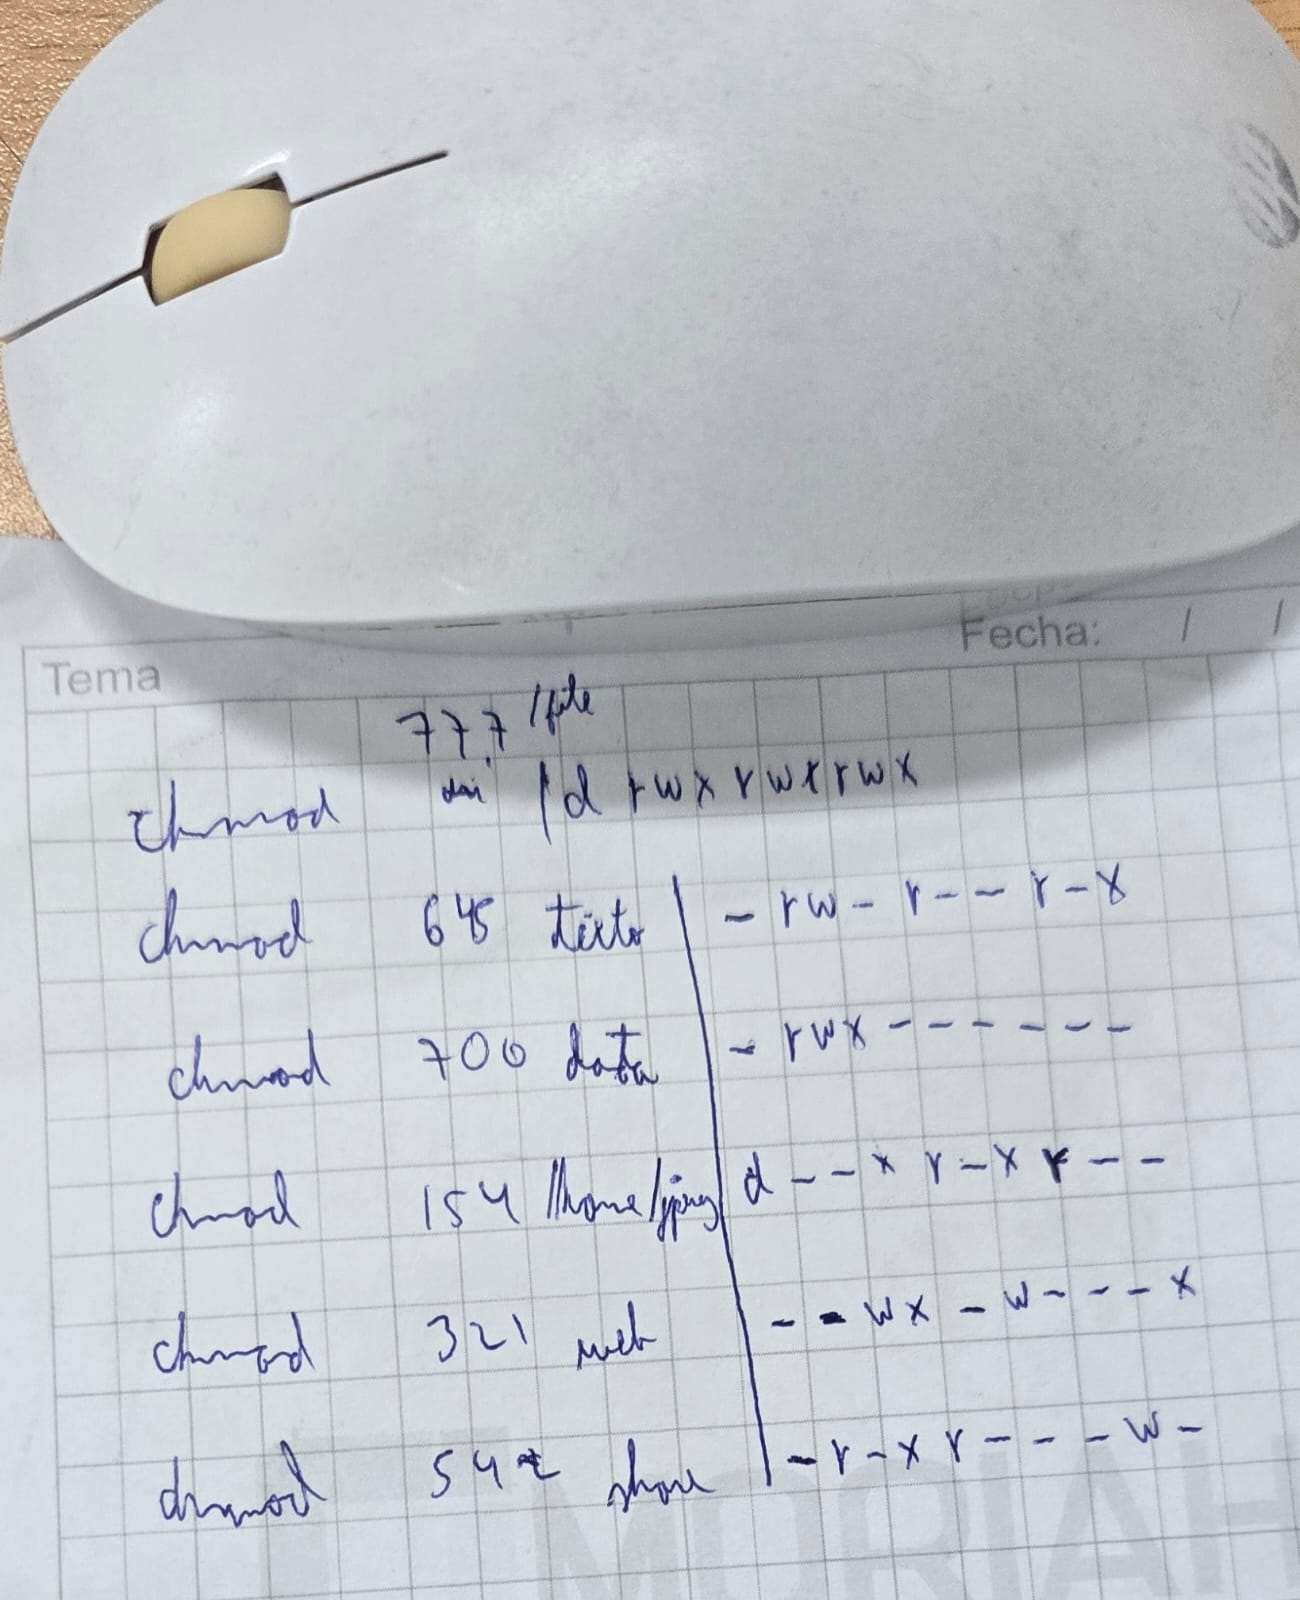 Fecha: / /
Tema
777 /file
chmod dir /d rwxrwxrwx
chmod 645 texto | - rw- r-- r-x
chmod 700 data | - rwx------
chmod 154 /home/ | d--x r-x r--
chmod 321 web | --wx -w---x
chmod 542 share | -r-xr---w-
MORIAH